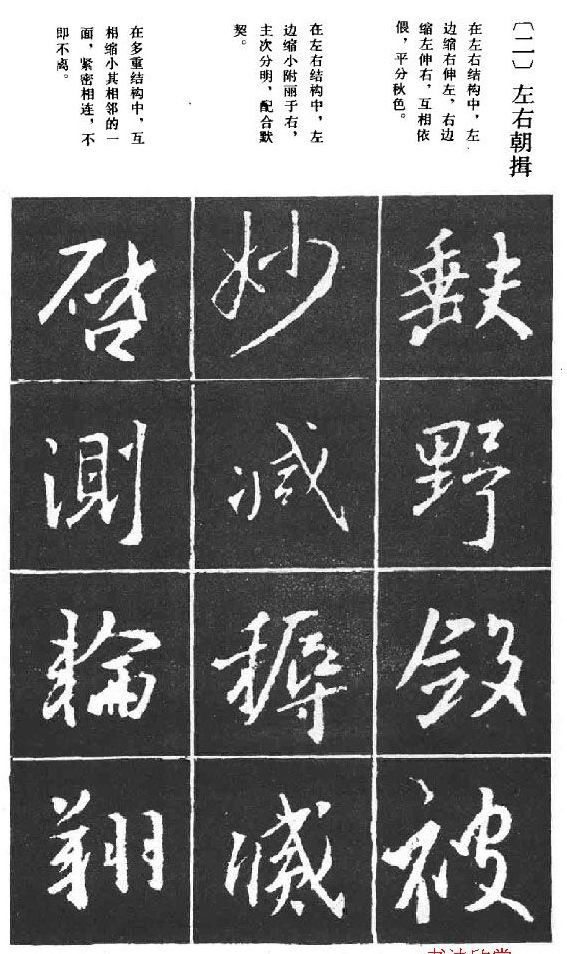 〔二〕左右朝揖
在左右结构中，左
边缩右伸左，右边
缩左伸右，互相依
偎，平分秋色。
在左右结构中，左
边缩小附丽于右，
主次分明，配合默
契。
在多重结构中，互
相缩小其相邻的一
面，紧密相连，不
即不离。
野
被
妙
减
滅
啓
測
輪
翔